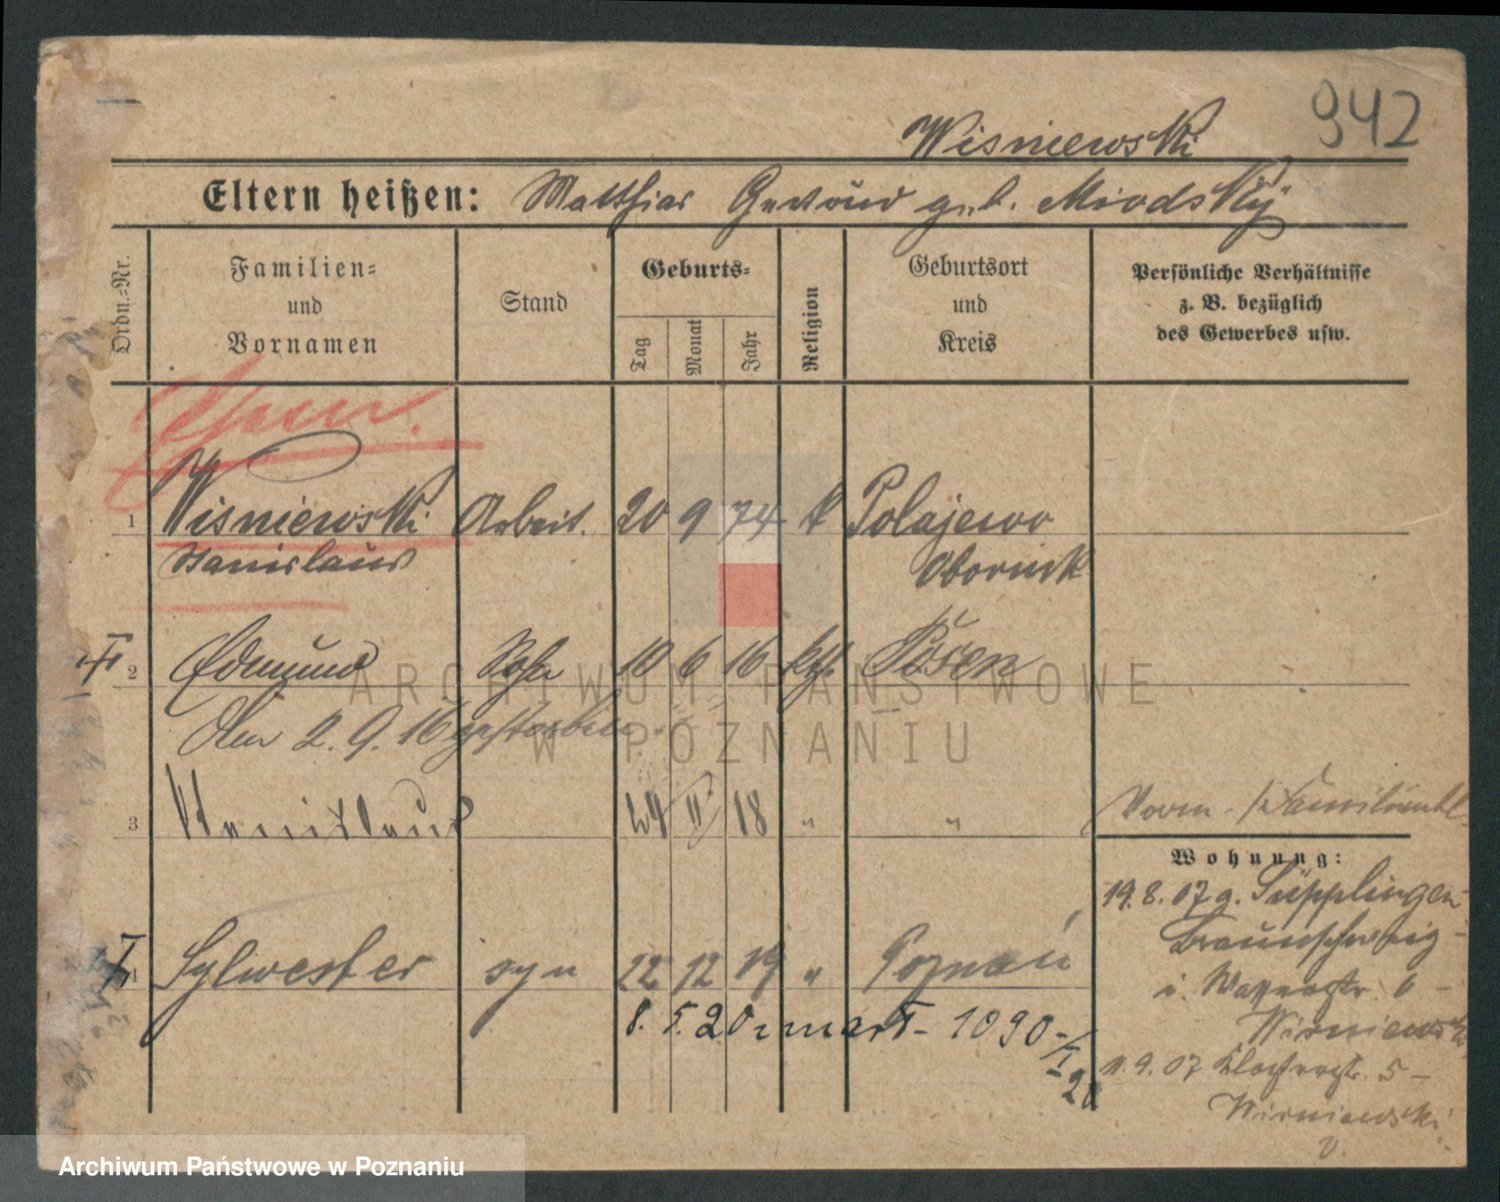 942
Wisniewski
Eltern heißen: Matthias Gertrud geb. Miodsky
Ordn.-Nr.
Familien-
und
Vornamen
Stand
Geburts-
Tag
Monat
Jahr
Religion
Geburtsort
und
Kreis
Persönliche Verhältnisse
z. B. bezüglich
des Gewerbes usw.
1 Wisniewski Arbeit. 20 9 74 k Polajewo
Stanislaus Obornik
2 Edmund Sohn 10 6 16 kth. Posen
Am 2. 9. 16 gestorben
3 Stanislaus 24 II 18 " "
4 Sylwester syn 22 12 19 " Poznań
8. 5. 20 zmarł - 1090 -
Wohnung:
19. 8. 07 a. Süpplingen
Braunschweig -
i. 6 -
Wisniewski
11. 9. 07 Klosterstr. 5 -
Wisniewski
ARCHIWUM PAŃSTWOWE
W POZNANIU
Archiwum Państwowe w Poznaniu